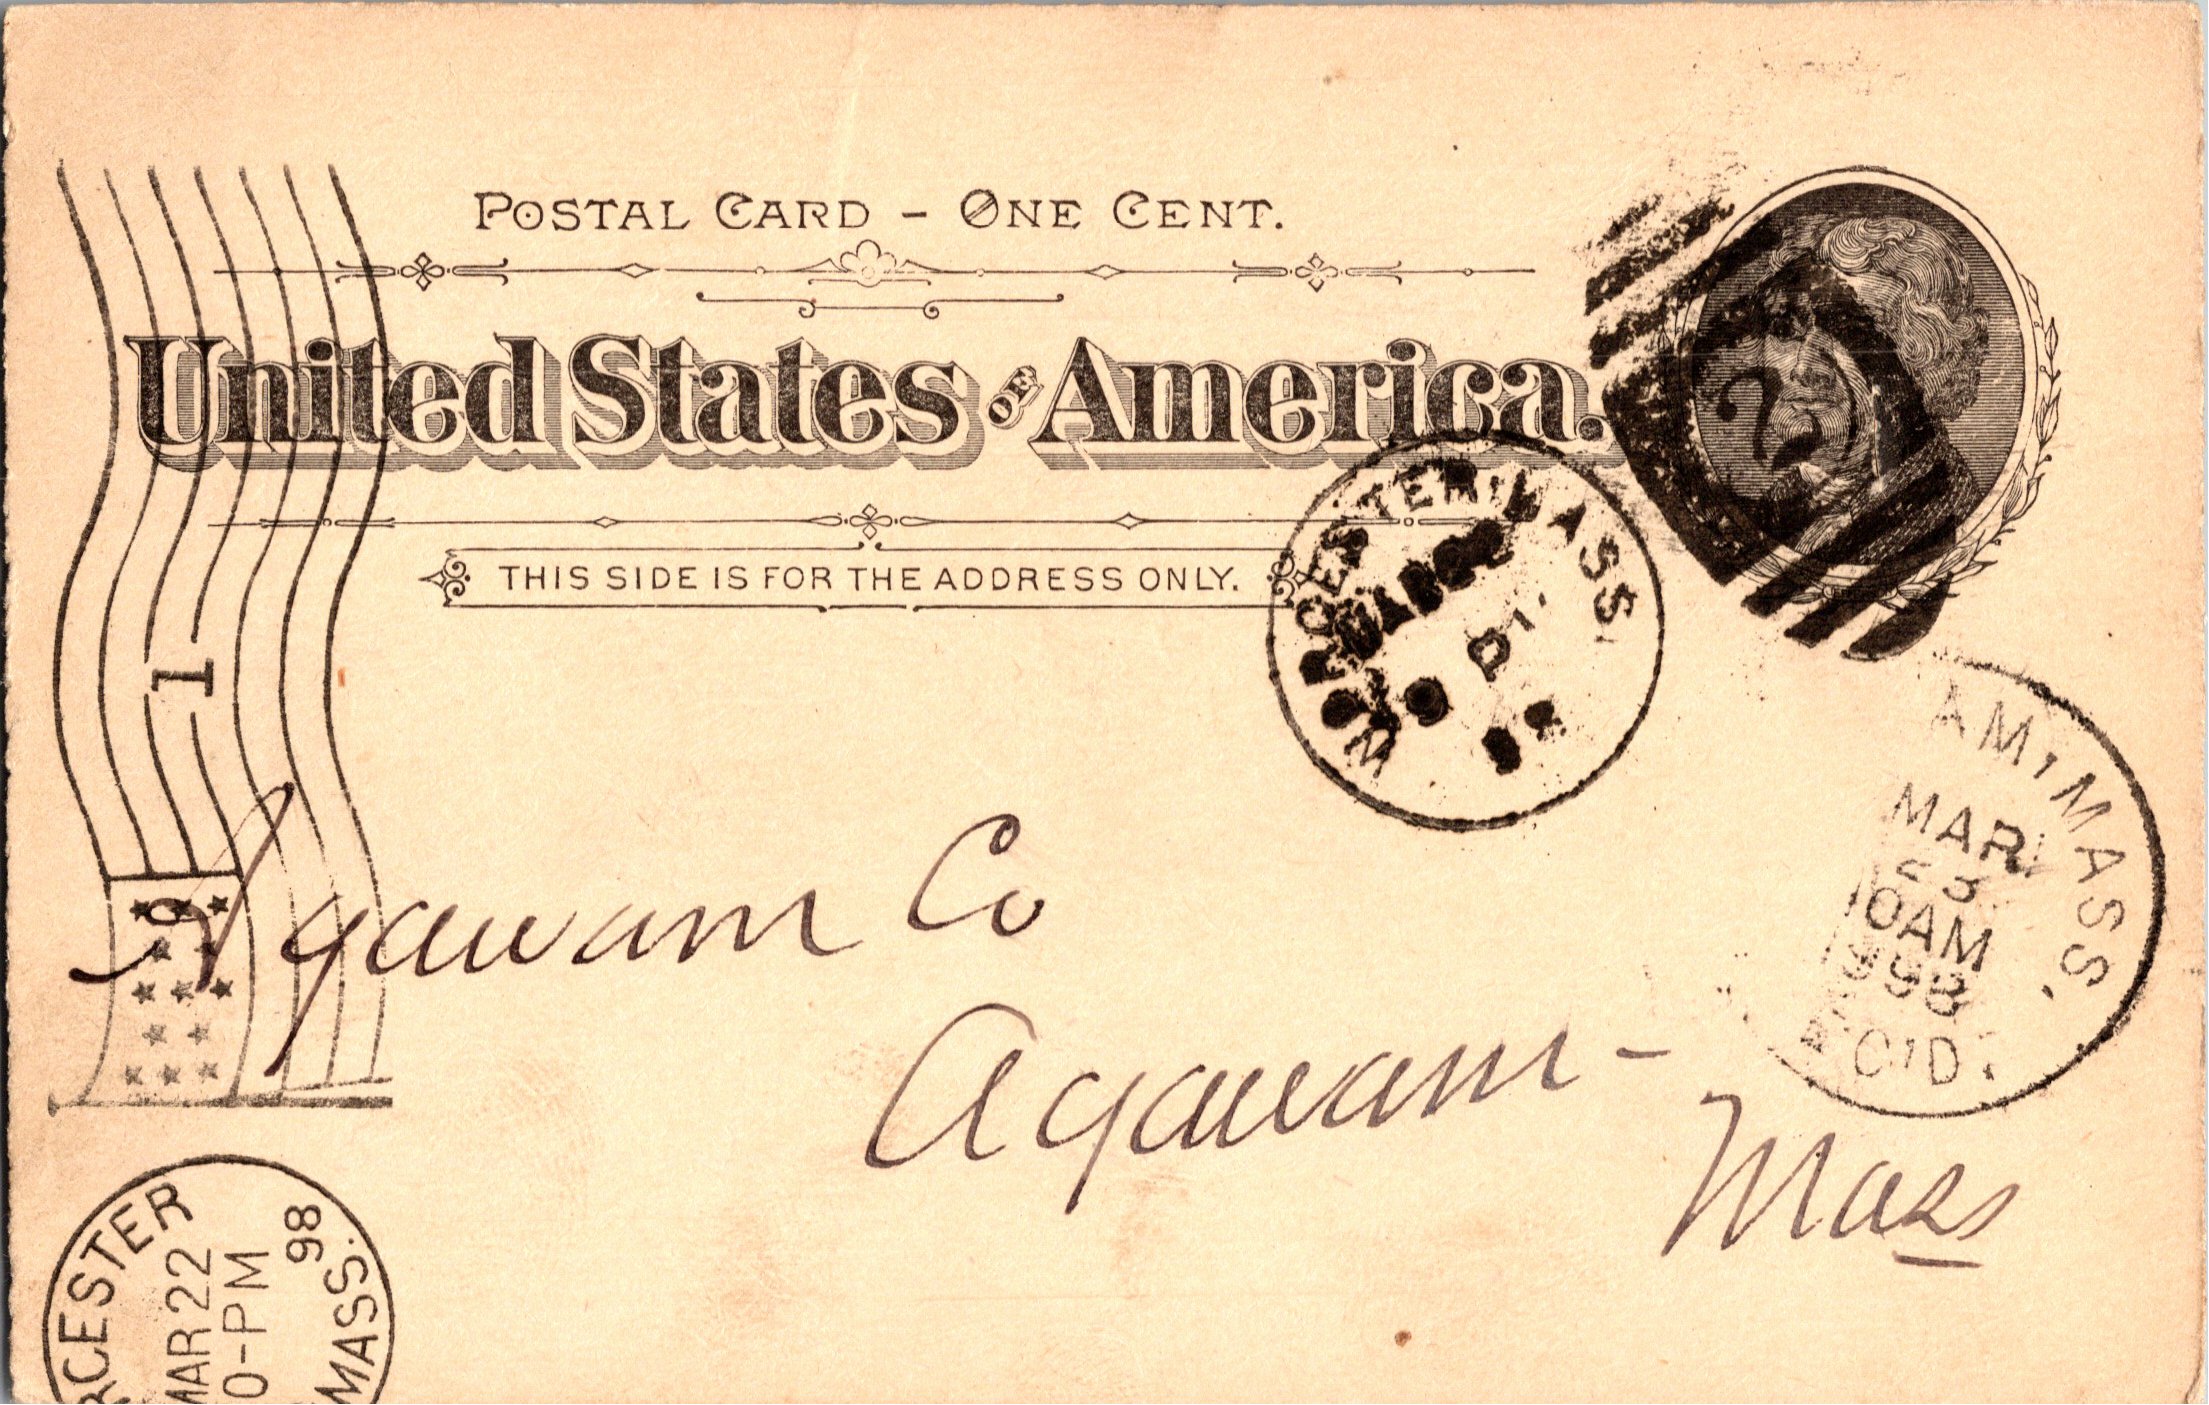 POSTAL CARD - ONE CENT.
United States OF America.
THIS SIDE IS FOR THE ADDRESS ONLY.
1
WORCESTER, MASS.
2
AM, MASS.
MAR
23
10AM
1898
REC'D.
Agawam Co
Agawam -
Mass
RCESTER
MAR 22
0-PM
98
MASS.